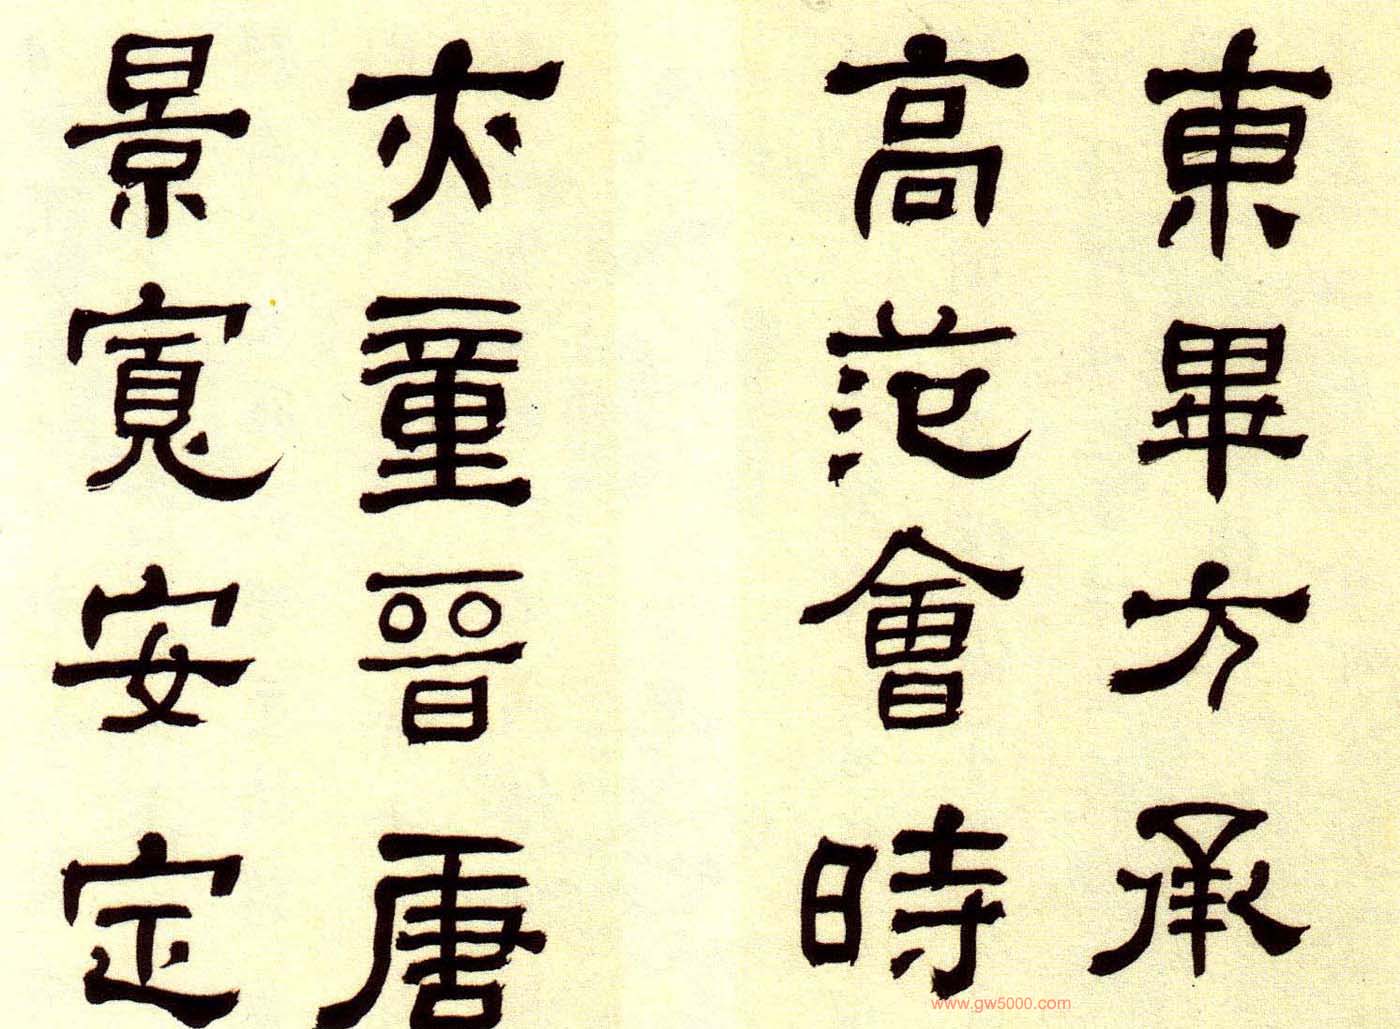 東畢方承
高范會時
亦童晉唐
景寬安定
www.gw5000.com